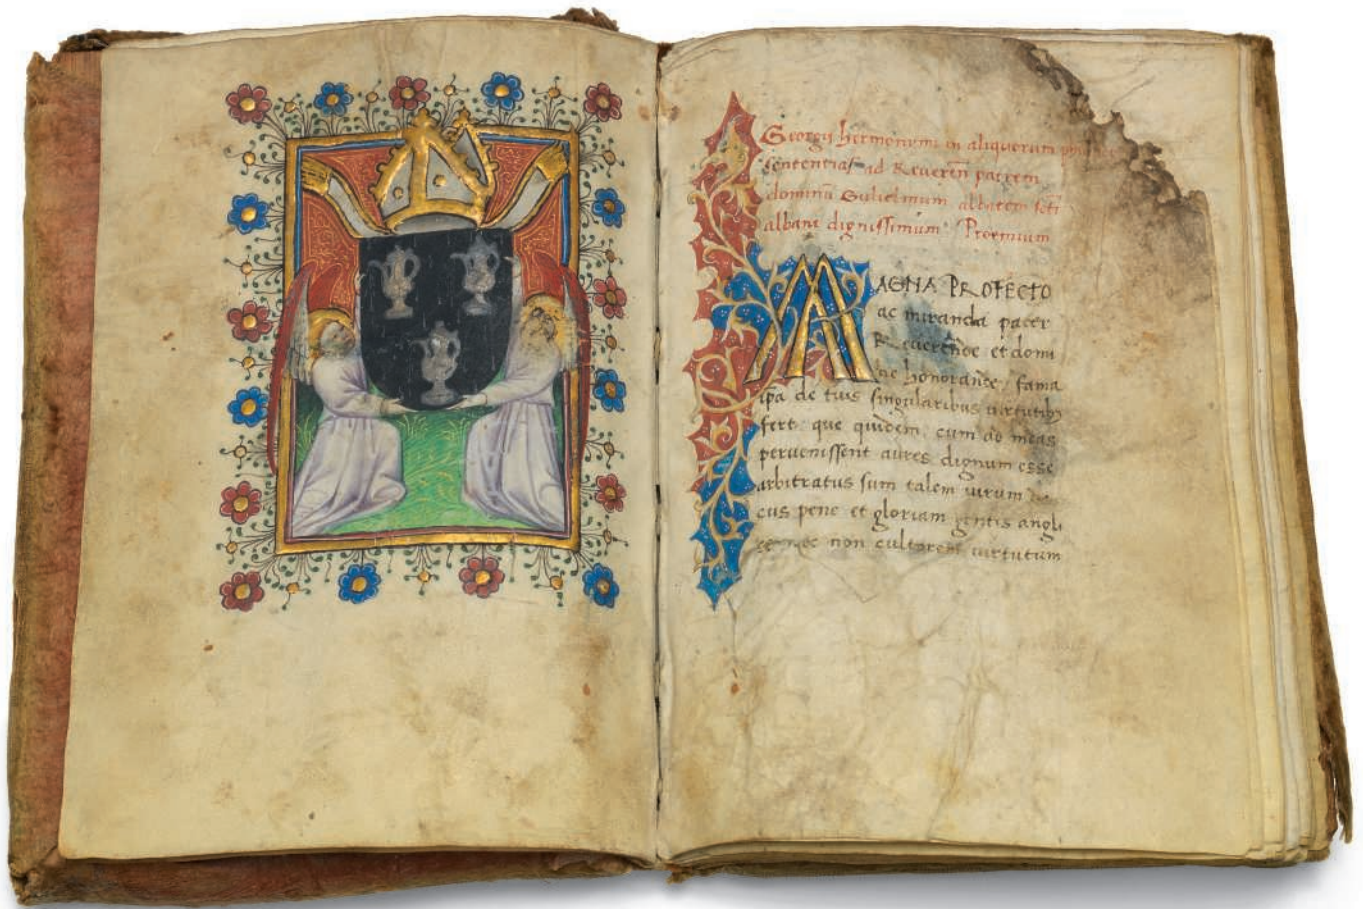 Georgii hermonymi in aliquorum
sententias ad Reveren̄ patrem
dominū Gulielmum abbatem scti
albani dignissimum Proemium
MAGNA PROFECTO
ac miranda pater
Reverende et domi
ne honorande, fama
ipa de tuis singularibus virtutib
fert. que quidem, cum ad meas
pervenissent aures dignum esse
arbitratus sum talem virum
cus pene et gloriam gentis angli
nec non cultorem virtutum